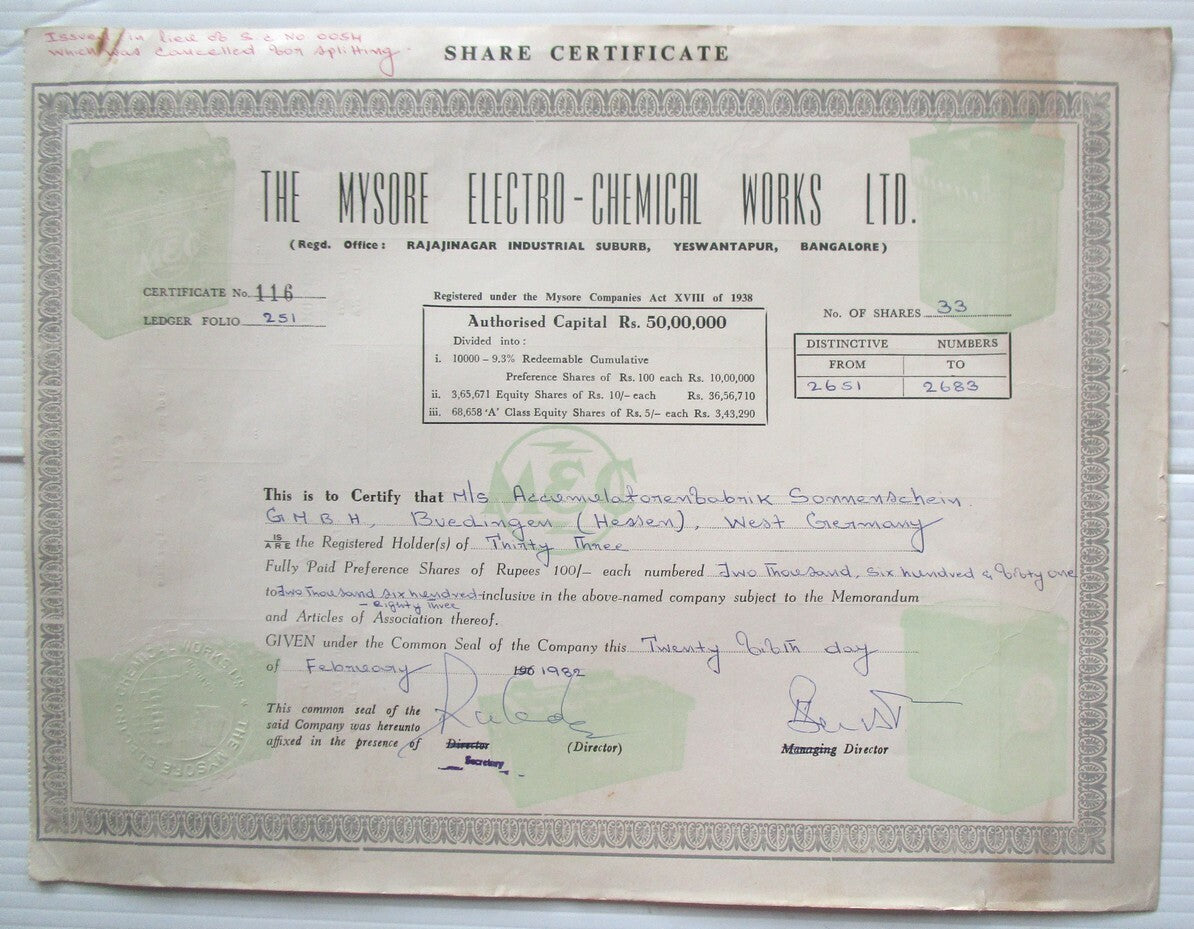 Issued in lieu of S.C No 0054
which was cancelled for splitting.
SHARE CERTIFICATE
THE MYSORE ELECTRO-CHEMICAL WORKS LTD.
(Regd. Office: RAJAJINAGAR INDUSTRIAL SUBURB, YESWANTAPUR, BANGALORE)
CERTIFICATE No. 116
LEDGER FOLIO 251
Registered under the Mysore Companies Act XVIII of 1938
Authorised Capital Rs. 50,00,000
Divided into:
i. 10000 – 9.3% Redeemable Cumulative
Preference Shares of Rs. 100 each Rs. 10,00,000
ii. 3,65,671 Equity Shares of Rs. 10/- each Rs. 36,56,710
iii. 68,658 'A' Class Equity Shares of Rs. 5/- each Rs. 3,43,290
No. OF SHARES 33
DISTINCTIVE NUMBERS
FROM TO
2651 2683
MEC
This is to Certify that M/s Accumulatorenfabrik Sonnenschein
GMBH, Buedingen (Hessen), West Germany
IS ARE the Registered Holder(s) of Thirty Three
Fully Paid Preference Shares of Rupees 100/- each numbered Two Thousand, Six hundred & fifty one
to Two Thousand six hundred inclusive in the above-named company subject to the Memorandum
- eighty three
and Articles of Association thereof.
GIVEN under the Common Seal of the Company this Twenty fifth day
of February 1982
This common seal of the
said Company was hereunto
affixed in the presence of Director (Director) Managing Director
Secretary